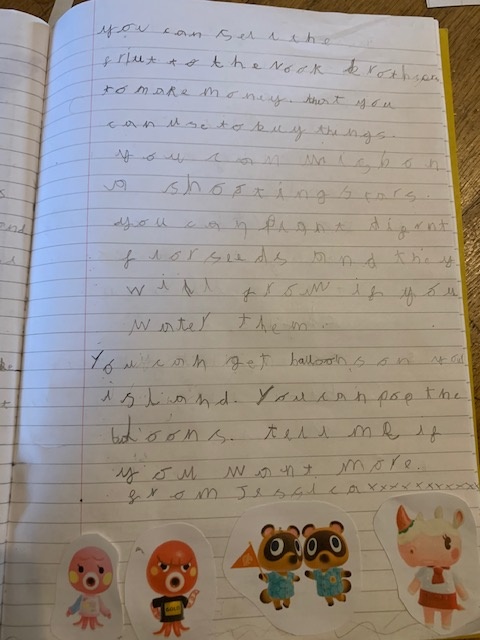 you can sell the
friut to the Nook brothers
to make money. that you
can use to buy things.
you can wish on
a shooting stars.
you can plant difrent
flor seeds and they
will grow if you
water them.
You can get balloons on you
island. You can pop the
baloons. tell me if
you want more.
from Jessica xxxxxxxxxxx
GOLD